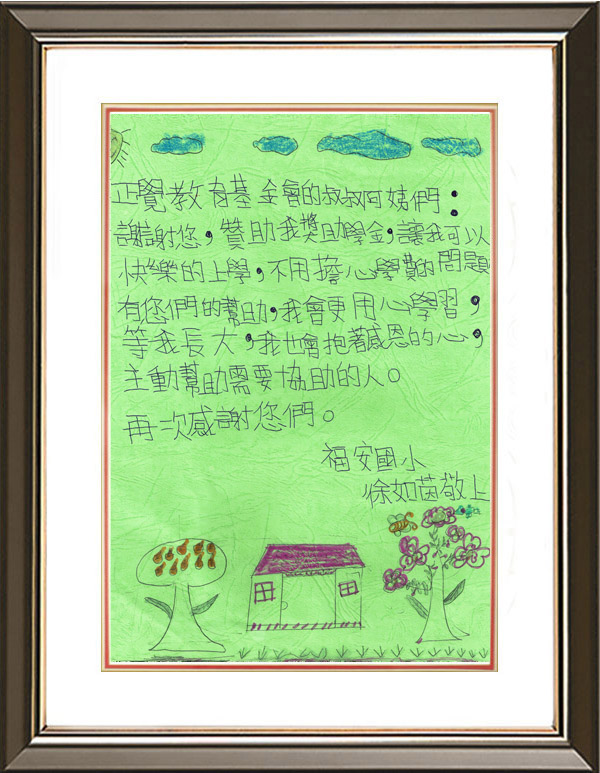 正覺教育基金會的叔叔阿姨們：
謝謝您，贊助我獎助學金，讓我可以
快樂的上學，不用擔心學費的問題
有您們的幫助，我會更用心學習，
等我長大，我也會抱著感恩的心，
主動幫助需要協助的人。
再次感謝您們。
福安國小
徐如茵敬上